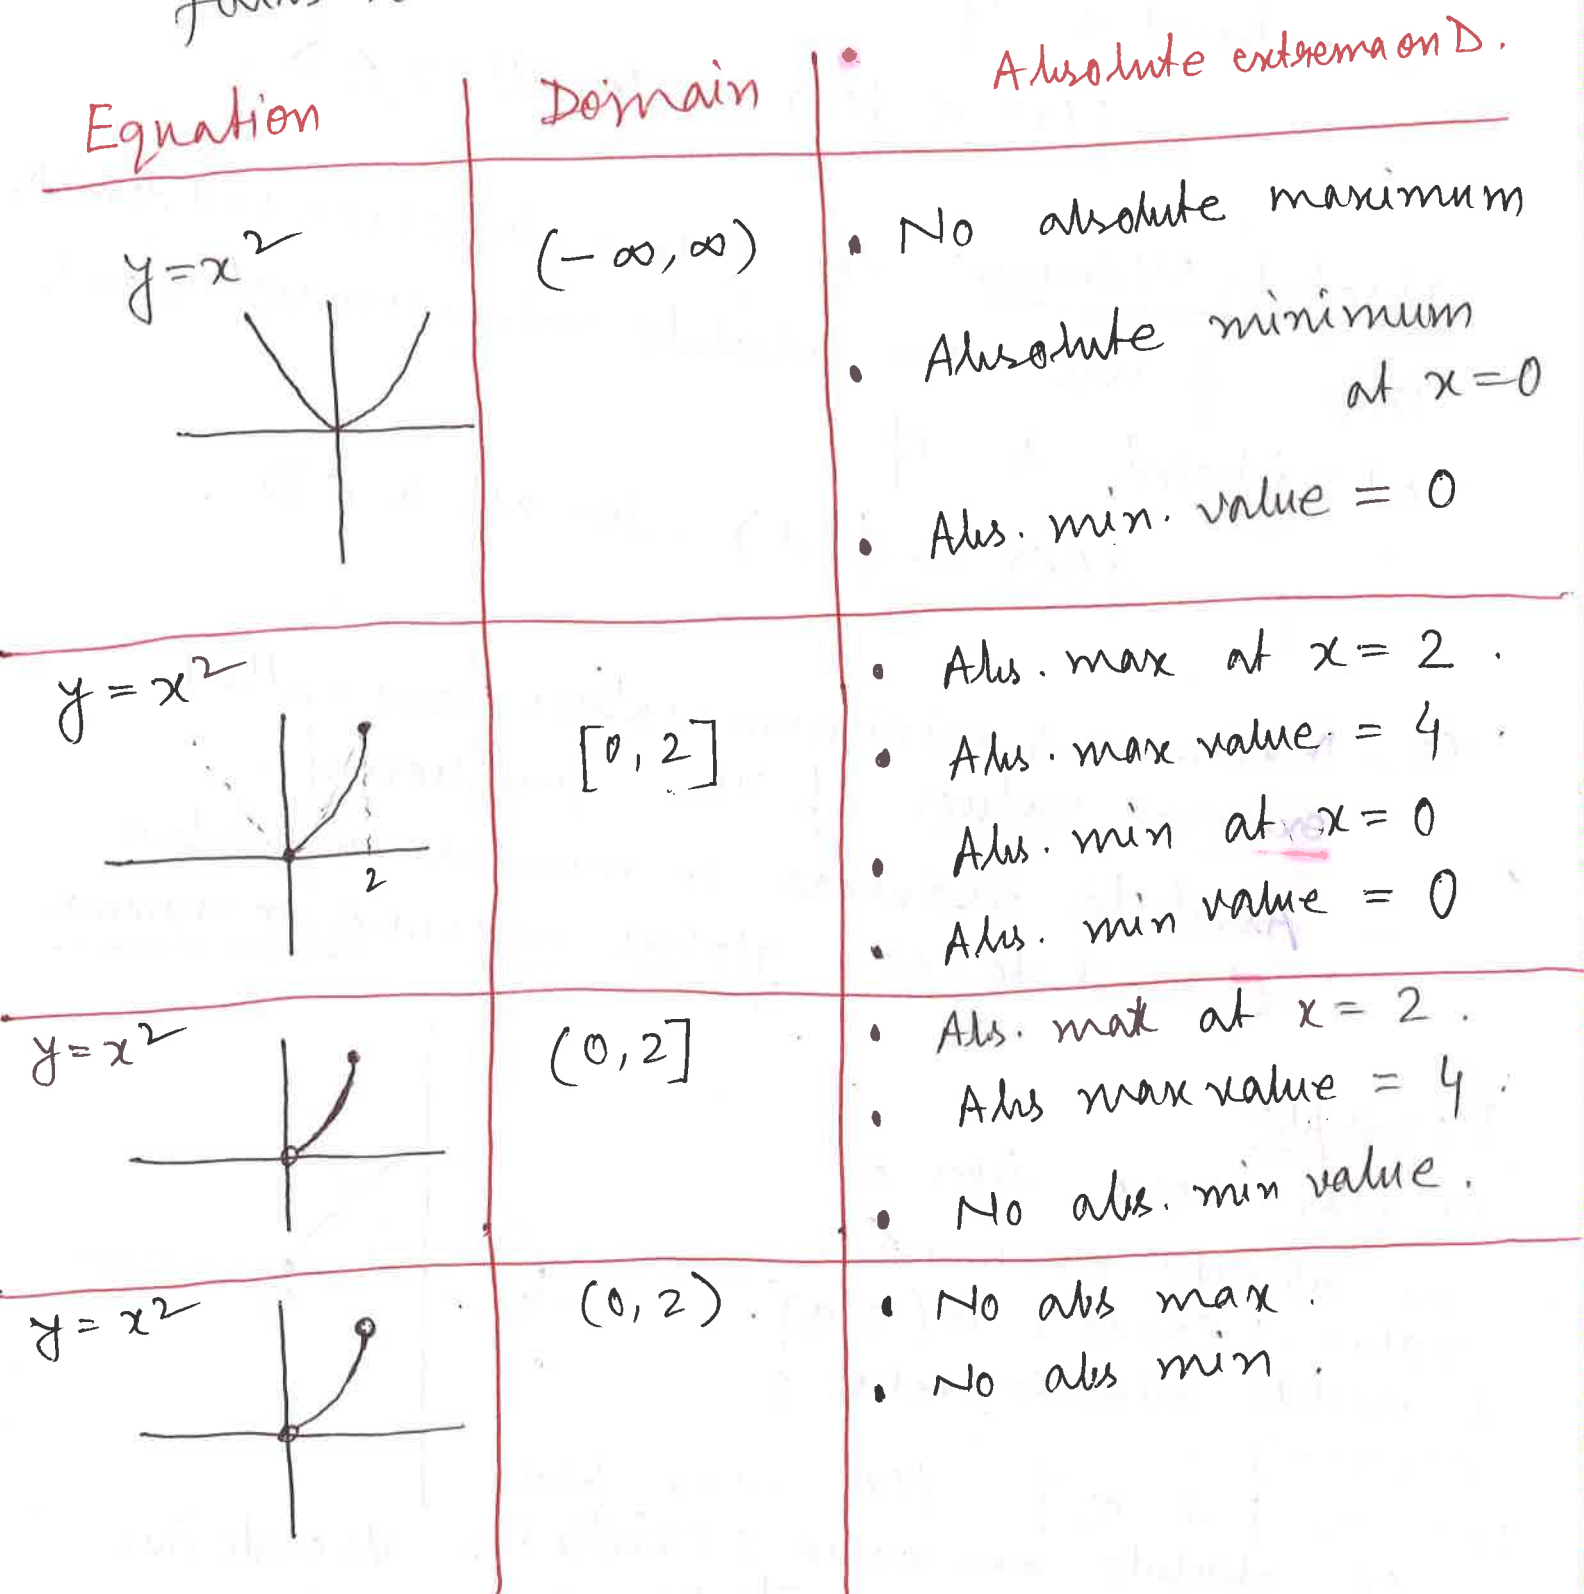 Equation Domain Absolute extrema on D.
y=x² (-∞,∞) • No absolute maximum
• Absolute minimum
at x=0
• Abs. min. value = 0
y=x² • Abs. max at x=2.
[0,2] • Abs. max value = 4.
• Abs. min at x=0
2
• Abs. min value = 0
y=x² (0,2] • Abs. max at x=2.
• Abs max value = 4.
• No abs. min value.
y=x² (0,2). • No abs max.
• No abs min.